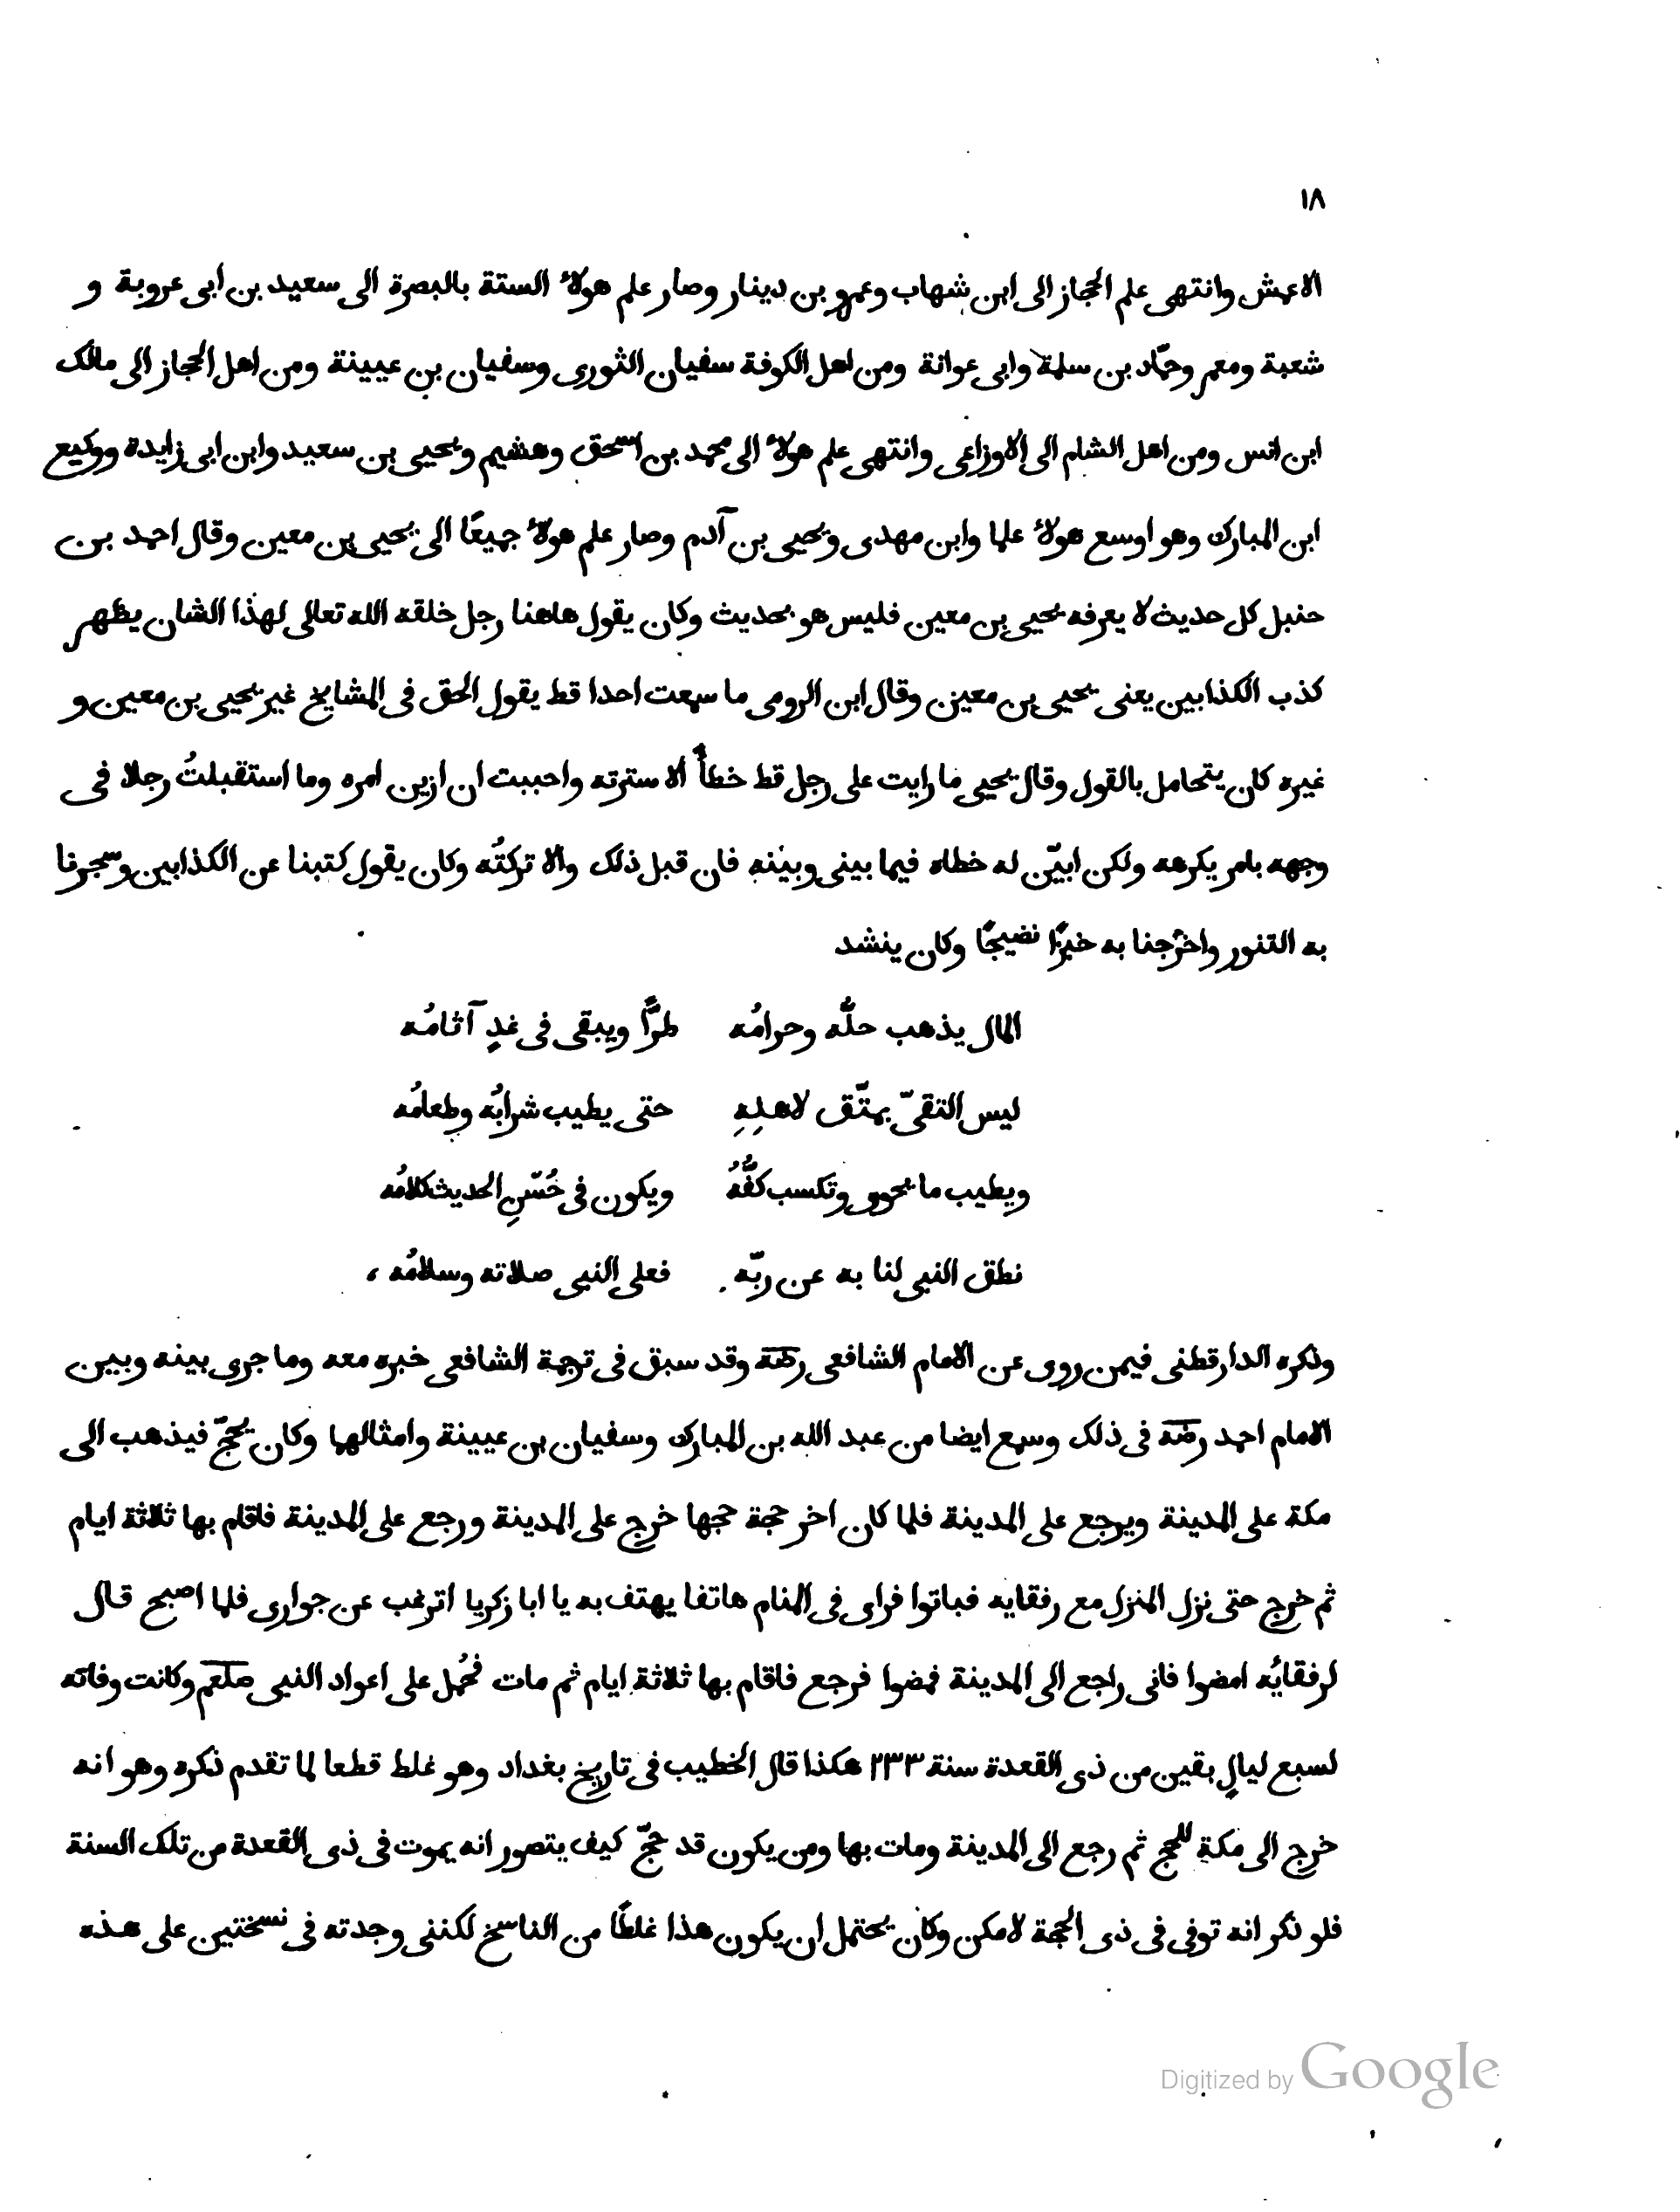 ١٨
الاعمش وانتهى علم الحجاز الى ابن شهاب وعمرو بن دينار وصار علم هولاء الستة بالبصرة الى سعيد بن ابى عروبة و
شعبة ومعمر وحمّاد بن سلمة وابى عوانة ومن اهل الكوفة سفيان الثورى وسفيان بن عيينة ومن اهل الحجاز الى مالك
ابن انس ومن اهل الشام الى الاوزاعى وانتهى علم هولاء الى محمد بن اسحق وهشيم ويحيى بن سعيد وابن ابى زايدة ووكيع
ابن المبارك وهو اوسع هولاء علما وابن مهدى ويحيى بن آدم وصار علم هولاء جميعًا الى يحيى بن معين وقال احمد بن
حنبل كل حديث لا يعرفه يحيى بن معين فليس هو بحديث وكان يقول هاهنا رجل خلقه الله تعالى لهذا الشان يظهر
كذب الكذابين يعنى يحيى بن معين وقال ابن الرومى ما سمعت احدا قط يقول الحق فى المشايخ غير يحيى بن معين و
غيره كان يتحامل بالقول وقال يحيى ما رايت على رجل قط خطأً الا سترته واحببت ان ازين امره وما استقبلتُ رجلا فى
وجهه بامر يكرهه ولكن ابيّن له خطاه فيما بينى وبينه فان قبل ذلك والا تركتُه وكان يقول كتبنا عن الكذابين وسجرنا
به التنور واخرجنا به خبزًا نضيجًا وكان ينشد
المال يذهب حلُّه وحرامُه طرًّا ويبقى فى غدٍ آثامُه
ليس التقىّ بمتّق لاهلِهِ حتى يطيب شرابُه وطعامُه
ويطيب ما يحوى وتكسب كفُّهُ ويكون فى حُسْنِ الحديث كلامُه
نطق النبى لنا به عن ربّه فعلى النبى صلاته وسلامُه ،
وذكره الدارقطنى فيمن روى عن الامام الشافعى رضه وقد سبق فى ترجمة الشافعى خبره معه وما جرى بينه وبين
الامام احمد رضه فى ذلك وسمع ايضا من عبد الله بن المبارك وسفيان بن عيينة وامثالهما وكان يحجّ فيذهب الى
مكة على المدينة ويرجع على المدينة فلما كان اخر حجة حجها خرج على المدينة ورجع على المدينة فاقام بها ثلاثة ايام
ثم خرج حتى نزل المنزل مع رفقايه فباتوا فراى فى المنام هاتفا يهتف به يا ابا زكريا اترغب عن جوارى فلما اصبح قال
لرفقائه امضوا فانى راجع الى المدينة فمضوا فرجع فاقام بها ثلاثة ايام ثم مات فحُمل على اعواد النبى صلعم وكانت وفاته
لسبع ليالٍ بقين من ذى القعدة سنة ٢٣٣ هكذا قال الخطيب فى تاريخ بغداد وهو غلط قطعا لما تقدم ذكره وهو انه
خرج الى مكة للحج ثم رجع الى المدينة ومات بها ومن يكون قد حجّ كيف يتصور انه يموت فى ذى القعدة من تلك السنة
فلو ذكر انه توفى فى ذى الحجة لامكن وكان يحتمل ان يكون هذا غلطًا من الناسخ لكننى وجدته فى نسختين على هذه
Digitized by Google